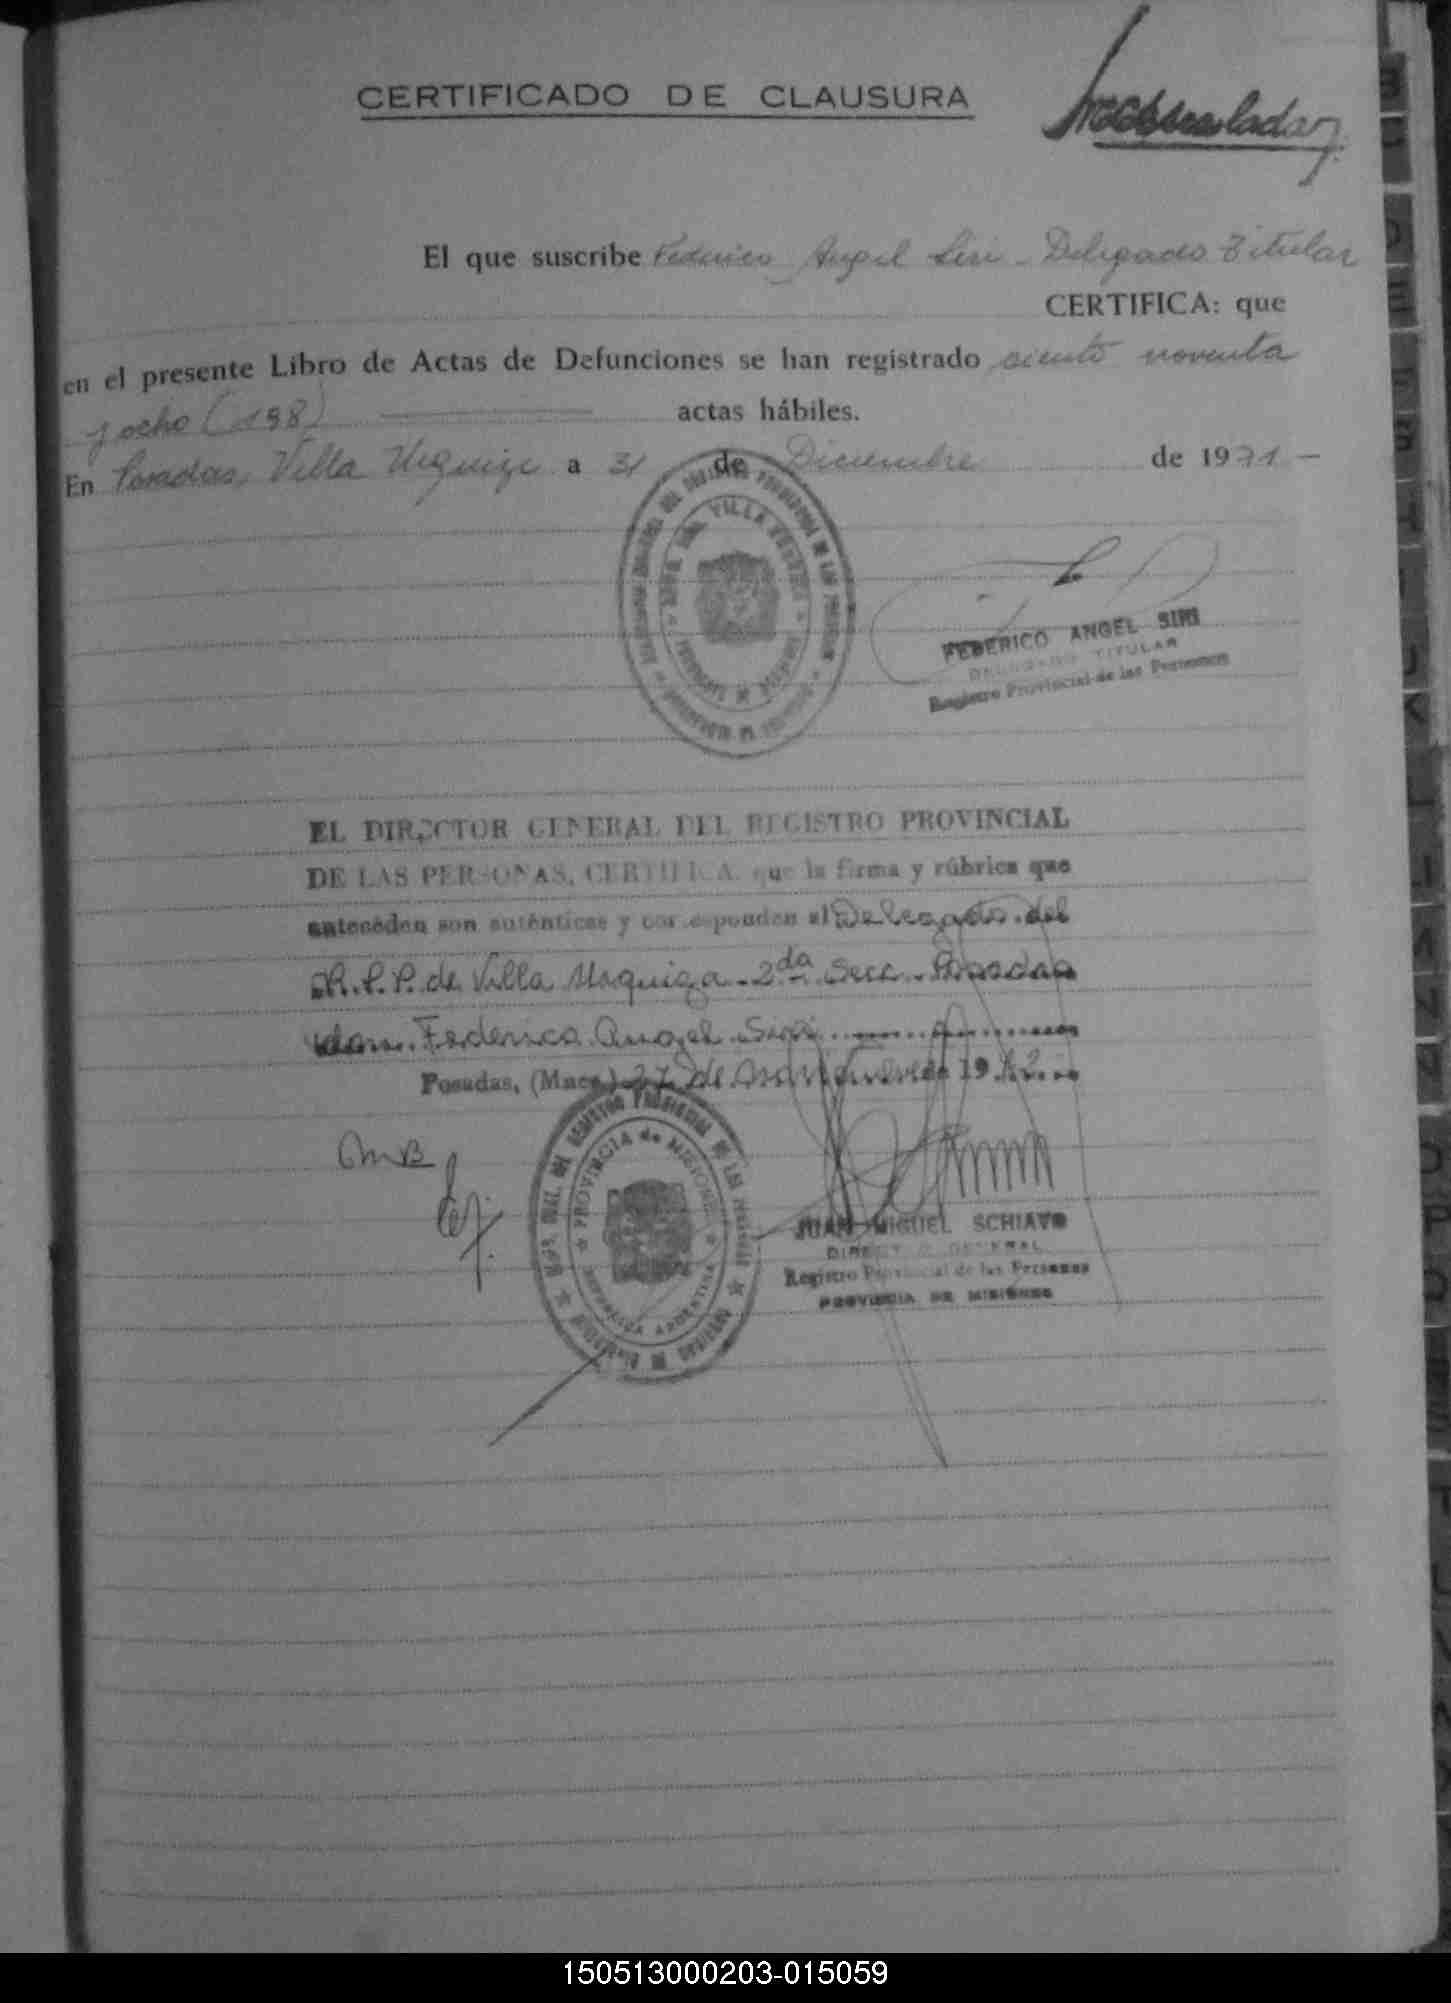 CERTIFICADO DE CLAUSURA
El que suscribe Federico Angel Siri - Delegado Titular
CERTIFICA: que
en el presente Libro de Actas de Defunciones se han registrado ciento noventa
y ocho (198) actas hábiles.
En Posadas, Villa Urquiza a 31 de Diciembre de 1971 -
VILLA URQUIZA
FEDERICO ANGEL SIRI
DELEGADO TITULAR
Registro Provincial de las Personas
EL DIRECTOR GENERAL DEL REGISTRO PROVINCIAL
DE LAS PERSONAS, CERTIFICA, que la firma y rúbrica que
anteceden son auténticas y corresponden al Delegado del
R.P.P. de Villa Urquiza - 2da Secc. Posadas
don Federico Angel Siri
Posadas, (Mnes.) 27 de
19
PROVINCIA de MISIONES
REPUBLICA ARGENTINA
JUAN MIGUEL SCHIAVO
DIRECTOR GENERAL
Registro Provincial de las Personas
PROVINCIA DE MISIONES
150513000203-015059